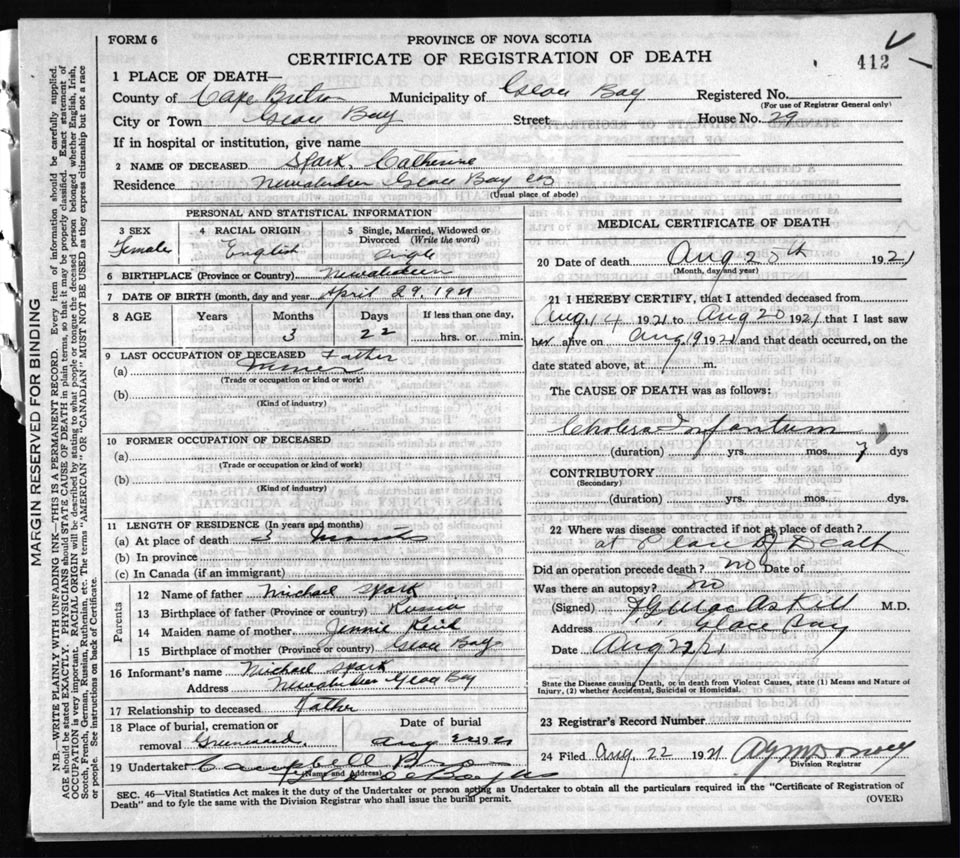 FORM 6
PROVINCE OF NOVA SCOTIA
CERTIFICATE OF REGISTRATION OF DEATH
412
1 PLACE OF DEATH—
County of Cape Breton Municipality of Glace Bay Registered No.
(For use of Registrar General only)
City or Town Glace Bay Street House No. 29
If in hospital or institution, give name
2 NAME OF DECEASED Spark, Catherine
Residence Newaberdeen Glace Bay CB
(Usual place of abode)
PERSONAL AND STATISTICAL INFORMATION
3 SEX 4 RACIAL ORIGIN 5 Single, Married, Widowed or Divorced (Write the word)
Female English Single
6 BIRTHPLACE (Province or Country) Newaberdeen
7 DATE OF BIRTH (month, day and year) April 29, 1921
8 AGE Years Months Days If less than one day,
3 22 hrs. or min.
9 LAST OCCUPATION OF DECEASED Father
(a) Miner
(Trade or occupation or kind of work)
(b)
(Kind of industry)
10 FORMER OCCUPATION OF DECEASED
(a)
(Trade or occupation or kind of work)
(b)
(Kind of industry)
11 LENGTH OF RESIDENCE (In years and months)
(a) At place of death 3 months
(b) In province
(c) In Canada (if an immigrant)
Parents
12 Name of father Michael Spark
13 Birthplace of father (Province or country) Russia
14 Maiden name of mother Jennie
15 Birthplace of mother (Province or country) Glace Bay
16 Informant's name Michael Spark
Address Newaberdeen Glace Bay
17 Relationship to deceased Father
18 Place of burial, cremation or removal Greenwood. Date of burial Aug 22 1921
19 Undertaker Campbell Bros
(Name and Address)
MEDICAL CERTIFICATE OF DEATH
20 Date of death Aug 20th 1921
(Month, day and year)
21 I HEREBY CERTIFY, that I attended deceased from
Aug 14 1921 to Aug 20 1921 that I last saw
her alive on Aug 19 1921 and that death occurred, on the
date stated above, at m.
The CAUSE OF DEATH was as follows:
Cholera Infantum
(duration) yrs. mos. 7 dys
CONTRIBUTORY
(Secondary)
(duration) yrs. mos. dys.
22 Where was disease contracted if not at place of death?
at Place of Death
Did an operation precede death? no Date of
Was there an autopsy? no
(Signed) MacAskill M.D.
Address Glace Bay
Date Aug 22/21
State the Disease causing Death, or in death from Violent Causes, state (1) Means and Nature of Injury, (2) whether Accidental, Suicidal or Homicidal.
23 Registrar's Record Number
24 Filed Aug, 22 1921
Division Registrar
SEC. 46—Vital Statistics Act makes it the duty of the Undertaker or person acting as Undertaker to obtain all the particulars required in the "Certificate of Registration of
Death" and to fyle the same with the Division Registrar who shall issue the burial permit.
(OVER)
MARGIN RESERVED FOR BINDING
N.B.—WRITE PLAINLY WITH UNFADING INK—THIS IS A PERMANENT RECORD. Every item of information should be carefully supplied.
AGE should be stated EXACTLY. PHYSICIANS should STATE CAUSE OF DEATH in plain terms, so that it may be properly classified. Exact statement of
OCCUPATION is very important. RACIAL ORIGIN will be described by stating to what people or tongue the deceased person belonged whether English, Irish,
Scotch, French, German, Russian, Ruthenian, etc. The terms "AMERICAN" OR "CANADIAN" MUST NOT BE USED as they express citizenship but not a race
or people. See instructions on back of Certificate.